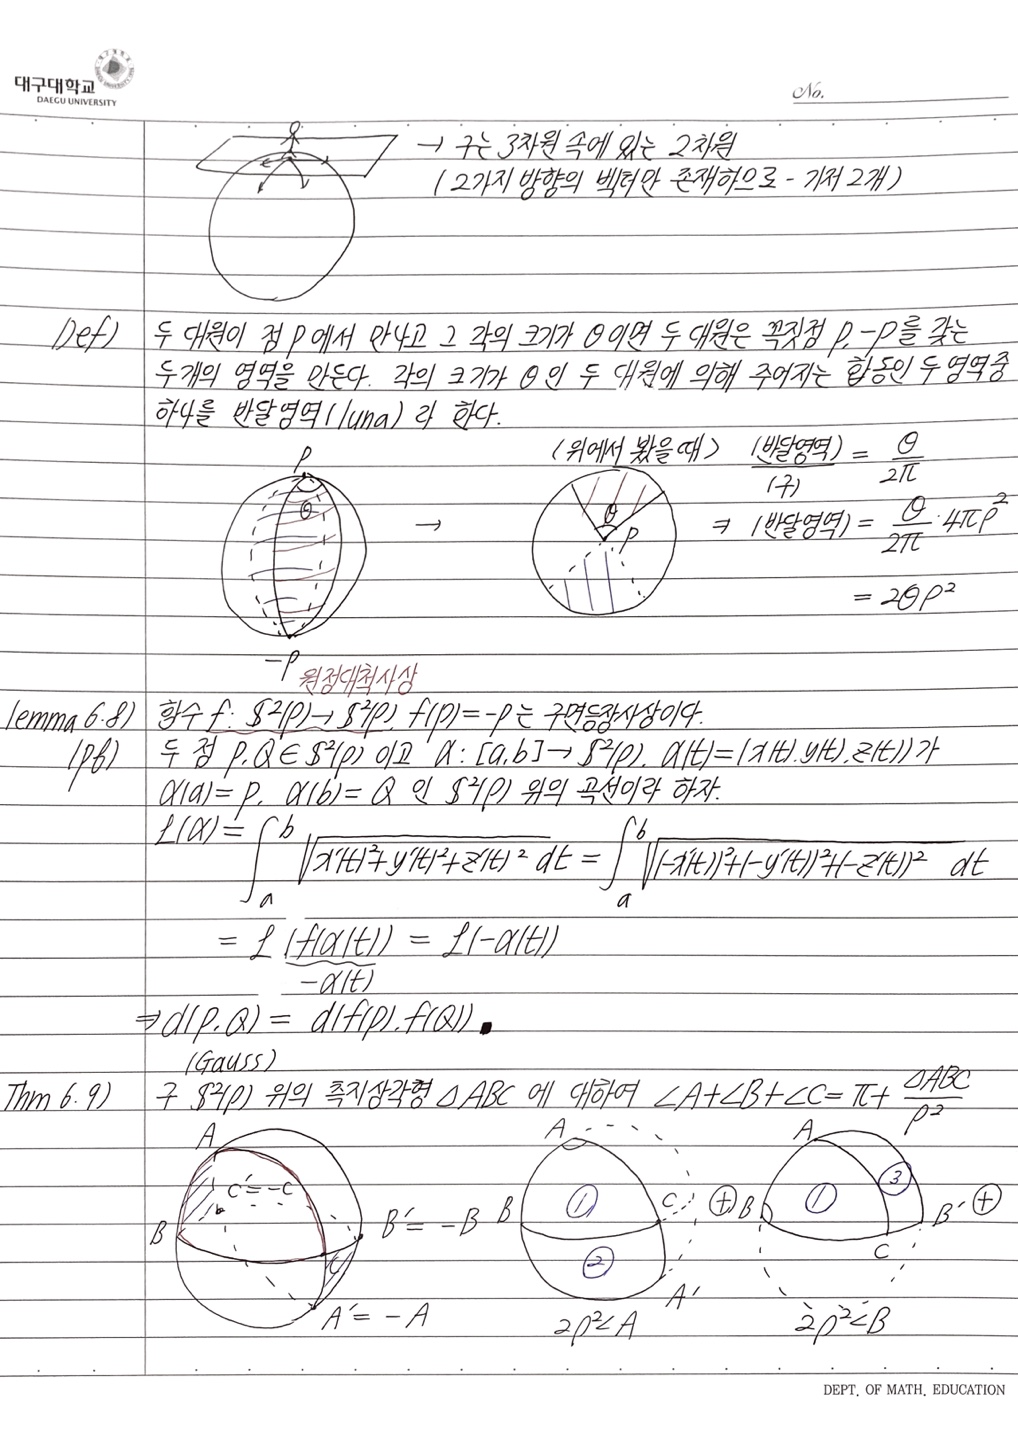 대구대학교
DAEGU UNIVERSITY
No.
→ 구는 3차원 속에 있는 2차원
(2가지 방향의 벡터만 존재하므로 - 기저 2개)
Def) 두 대원이 점 P에서 만나고 그 각의 크기가 θ이면 두 대원은 꼭짓점 P, -P를 갖는
두개의 영역을 만든다. 각의 크기가 θ인 두 대원에 의해 주어지는 합동인 두 영역중
하나를 반달영역(luna)라 한다.
P
θ
-P
→
(위에서 봤을때)
θ
P
(반달영역)/(구) = θ/2π
⇒ (반달영역) = θ/2π · 4πρ²
= 2θρ²
원점대칭사상
lemma 6.8) 함수 f: S²(ρ)→S²(ρ), f(p)=-p는 구면등장사상이다.
(pf) 두 점 P, Q ∈ S²(ρ) 이고 α: [a,b]→S²(ρ), α(t)=(x(t), y(t), z(t))가
α(a)=P, α(b)=Q 인 S²(ρ) 위의 곡선이라 하자.
L(α) = ∫_a^b √(x'(t)²+y'(t)²+z'(t)²) dt = ∫_a^b √((-x'(t))²+(-y'(t))²+(-z'(t))²) dt
= L(f(α(t))) = L(-α(t))
-α(t)
⇒ d(P,Q) = d(f(P), f(Q)) ■
(Gauss)
Thm 6.9) 구 S²(ρ) 위의 측지삼각형 △ABC 에 대하여 ∠A+∠B+∠C = π + △ABC/ρ²
A
C'=-C
B
B'=-B
C
A'=-A
A
B
①
C
②
A'
2ρ²∠A
⊕
A
B
①
③
B'
C
2ρ²∠B
⊕
DEPT. OF MATH. EDUCATION